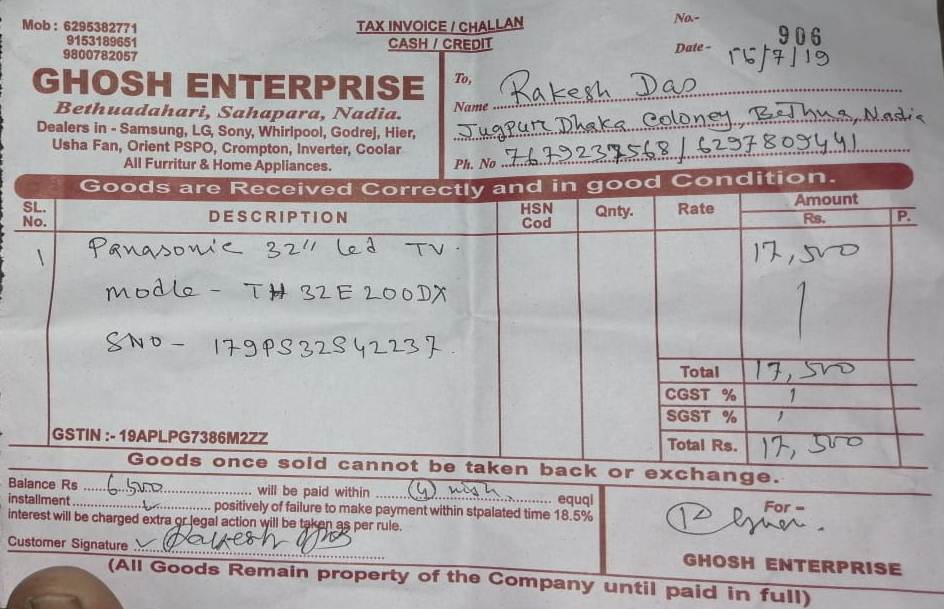 Mob : 6295382771
9153189651
9800782057
TAX INVOICE / CHALLAN
CASH / CREDIT
No.- 906
Date - 15/7/19
GHOSH ENTERPRISE
Bethuadahari, Sahapara, Nadia.
Dealers in - Samsung, LG, Sony, Whirlpool, Godrej, Hier,
Usha Fan, Orient PSPO, Crompton, Inverter, Coolar
All Furritur & Home Appliances.
To,
Name Rakesh Das
Jugpur Dhaka Coloney, Bethua, Nadia
Ph. No 7679237568 / 6297809441
Goods are Received Correctly and in good Condition.
SL. No. DESCRIPTION HSN Cod Qnty. Rate Amount Rs. P.
1 Panasonic 32" Led TV. 17,500
Modle - TH 32E200DX
SNO - 179PS32S42237.
Total 17,500
CGST %
SGST %
GSTIN :- 19APLPG7386M2ZZ
Total Rs. 17,500
Goods once sold cannot be taken back or exchange.
Balance Rs 6.500 will be paid within (4) equql
installment positively of failure to make payment within stpalated time 18.5%
Interest will be charged extra or legal action will be taken as per rule.
Customer Signature Rakesh Das
For -
GHOSH ENTERPRISE
(All Goods Remain property of the Company until paid in full)